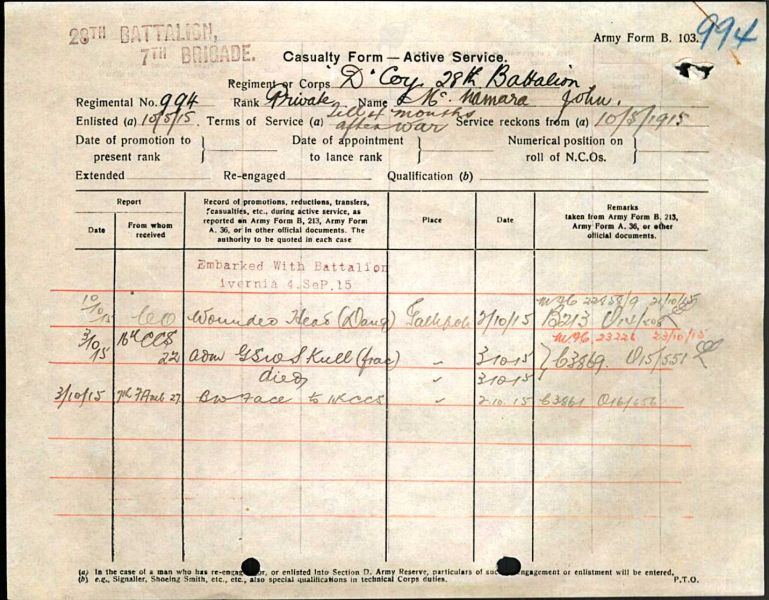 28TH BATTALION,
7TH BRIGADE.
Army Form B. 103.
994
Casualty Form — Active Service.
Regiment or Corps "D" Coy 28th Battalion
Regimental No. 994 Rank Private Name McNamara John.
Enlisted (a) 10/5/15. Terms of Service (a) till 4 months after war Service reckons from (a) 10/5/1915
Date of promotion to present rank } Date of appointment to lance rank } Numerical position on roll of N.C.Os. }
Extended Re-engaged Qualification (b)
Report
Date
From whom received
Record of promotions, reductions, transfers, casualties, etc., during active service, as reported on Army Form B, 213, Army Form A. 36, or in other official documents. The authority to be quoted in each case
Place
Date
Remarks
taken from Army Form B. 213, Army Form A. 36, or other official documents.
Embarked With Battalion
ivernia 4.SeP.15
10/10/15 CO Wounded Head (Dang) Gallipoli 2/10/15 B213
21/10/15
23226 23/10/15
3/10/15 16th CCS 22 adm GSW Skull (frac) " 3.10.15 C3869. O15/551
died " 3.10.15
3/10/15 7th F Amb 27. BW Face to CCS " 2.10.15
(a) In the case of a man who has re-engaged for, or enlisted into Section D. Army Reserve, particulars of such re-engagement or enlistment will be entered.
(b) e.g., Signaller, Shoeing Smith, etc., etc., also special qualifications in technical Corps duties. P.T.O.